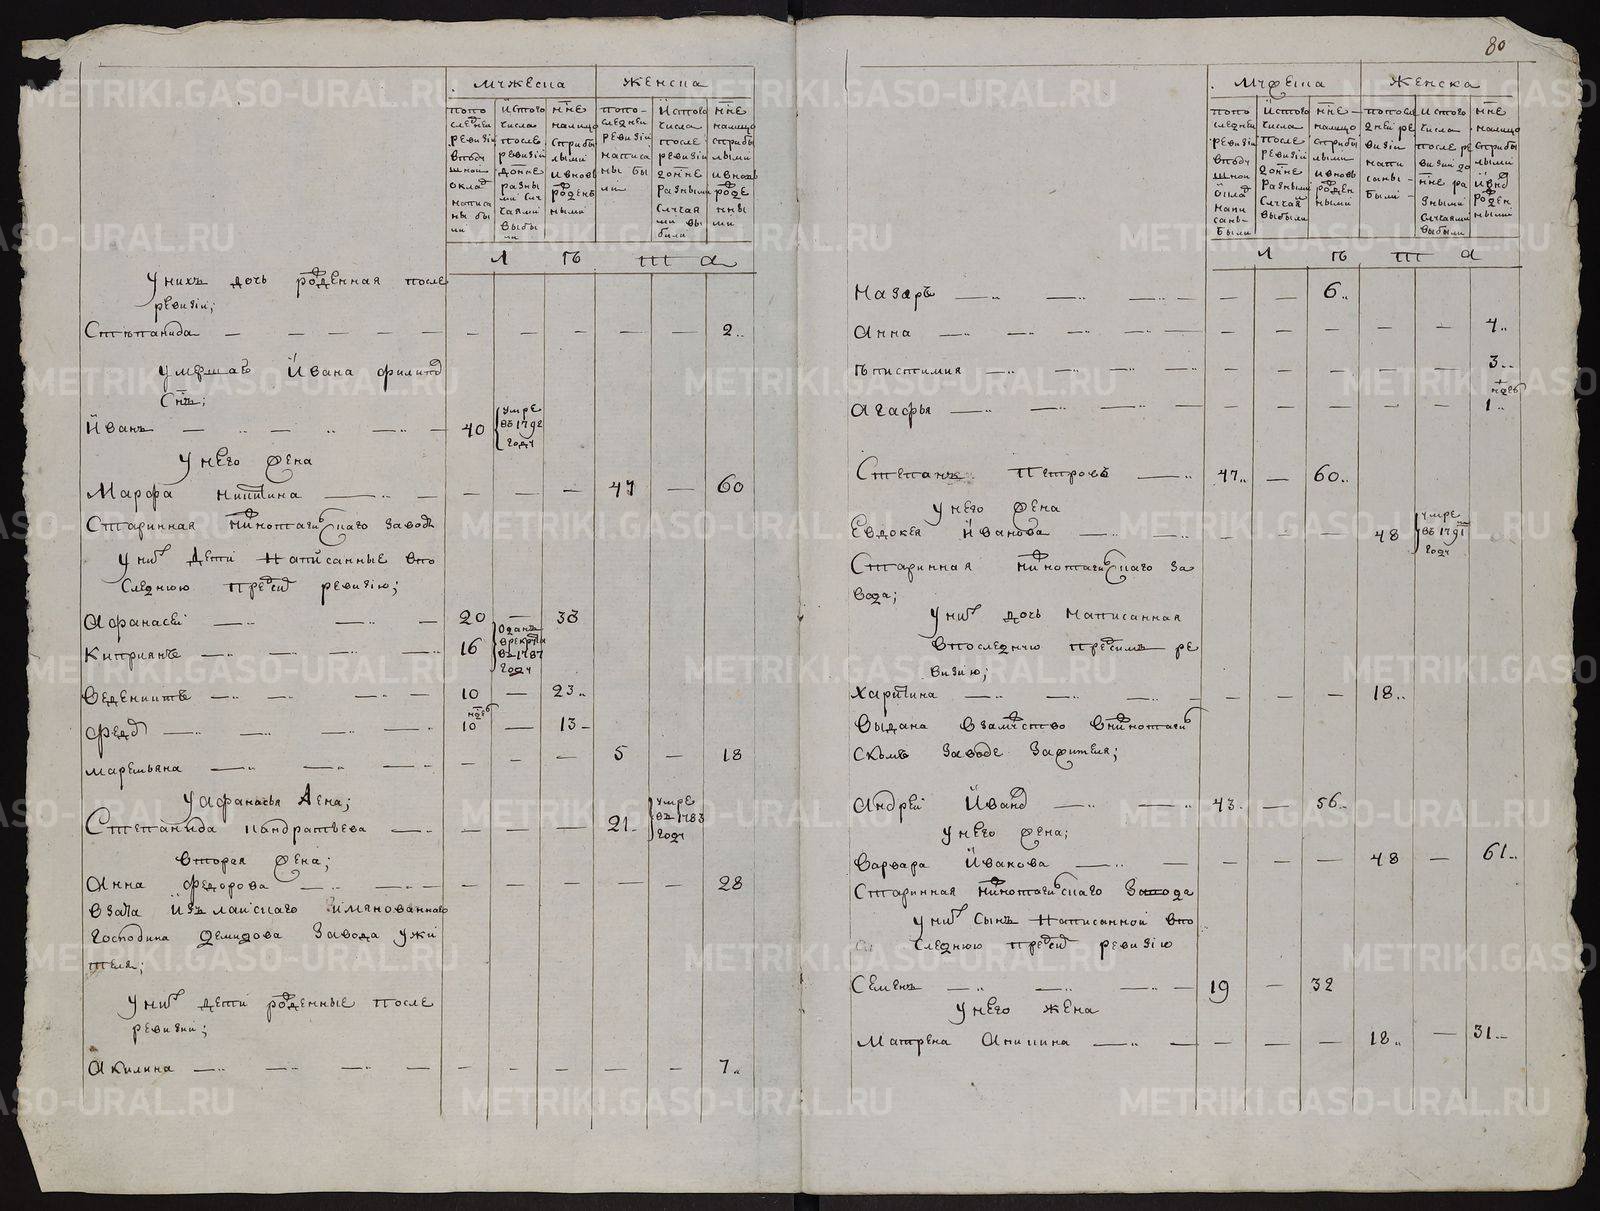 80
мужеска
женска
попо
следней
ревизіи
вподу
шной
оклад
написа
ны бы
ли
Изтого
числа
после
ревизіи
разны
ми слу
чаями
выбы
ли
ннѣ
налицо
сприбы
лыми
ивновь
рожден
ными
попо
следней
ревизіи
написа
ны бы
ли
Изтого
числа
после
ревизіи
разными
случая
ми вы
были
ннѣ
налицо
сприбы
лыми
ивновь
рожде
нны
ми
Л ѣ т а
Унихъ дочь рожденная после
ревизіи;
Степанида — — — — — — — — — — — 2..
умершаго Ивана филипов
Снъ;
Иванъ — .. — .. — .. — 40 умре
въ 1792
году
Унего жена
Марфа никитина — — — — — 47 — 60
Старинная нижнотагилскаго завода
Унихъ дети написанные впо
следнюю пред сим ревизию;
Афанасеи — .. — .. — 20 — 33
Киприянъ — .. — .. — 16 Отданъ
врекруты
въ 1787
году
Веденихтъ — .. — .. — 10 — 23..
федор — .. — .. — .. 10 нед — 13 —
маремьяна — .. — .. — .. — — — 5 — 18
Уафанасья жена;
Степанида кандратьева — .. — — — 21.. умре
въ 1783
году
вторая жена;
Анна федорова — .. — .. — — — — — — 28
взята изъ лаискаго имянованнаго
господина демидова завода ужи
теля;
Унихъ дети рожденные после
ревизии;
Акилина — .. — .. — .. — — — — — — 7..
мужеска
Женска
попо
следней
ревизіи
вподу
шнои
оклад
напи
саны
были
Изтого
числа
после
ревизіи
разными
случая
выбыли
ннѣ
налицо
сприбы
лыми
ивновь
рожден
ными
попосле
дней ре
визіи
напи
саны
были
изтого
числа
после ре
визіи до
ннѣ ра
зными
случаями
выбыли
ннѣ
налицо
сприбы
лыми
рожден
ными
Л ѣ т а
Назаръ — .. — .. — .. — — 6..
Анна — .. — .. — .. — — — — — 4..
ѣпистимия — .. — .. — .. — — — — — 3..
Агафья — .. — .. — .. — — — — — 1.. нед
Степанъ Петровъ — .. 47.. — 60..
Унего жена
Евдокея Иванова — .. — .. — — — 48 умре
въ 1791
году
Старинная нижнотагилскаго за
вода;
Унихъ дочь написанная
впоследнюю пред симъ ре
визию;
Харитина — .. — .. — .. — — — 18..
Выдана взамуство внижнотагил
скомъ заводе зажителя;
Андреи Иванов — .. — .. 43.. — 56..
Унего жена;
Варвара Иванова — .. — — — — 48 — 61..
Старинная нижнотагилскаго завода
Унихъ сынъ написаннои впо
следнюю пред сим ревизию
Семенъ — .. — .. — .. — 19 — 32
Унего жена
Матрена Аникина — .. — .. — — — 18.. — 31..